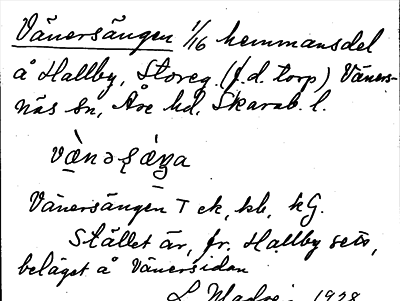 Vänersängen 1/16 hemmansdel
å Hallby, Storeg. (f.d. torp) Väners-
näs sn, Åse hd, Skarab. l.
Vänersängen T ek, kb, kG.
Stället är, fr. Hallby sett,
beläget å Vänersidan
1928